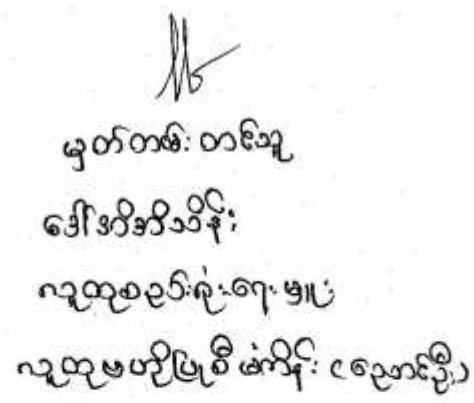 မှတ်တမ်းတင်သူ
ဒေါ်အိအိသိန်း
လူထုစည်းရုံးရေးမှူး
လူထုဗဟိုပြုစီမံကိန်း (ညောင်ဦး)